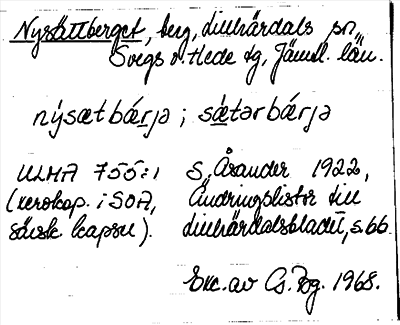 Nysättberget, berg, Linhärdals sn,
Svegs o Hede tg, Jämtl. län.
nýsætbárja ; sǽtərbárjə
ULMA 755:1 S. Åsander 1922,
(xeroxkop. i SOA, Ändringslistor till
särsk kapsel). Linhärdalsbladet, s. 66.
Exc. av Cs. Bg. 1968.